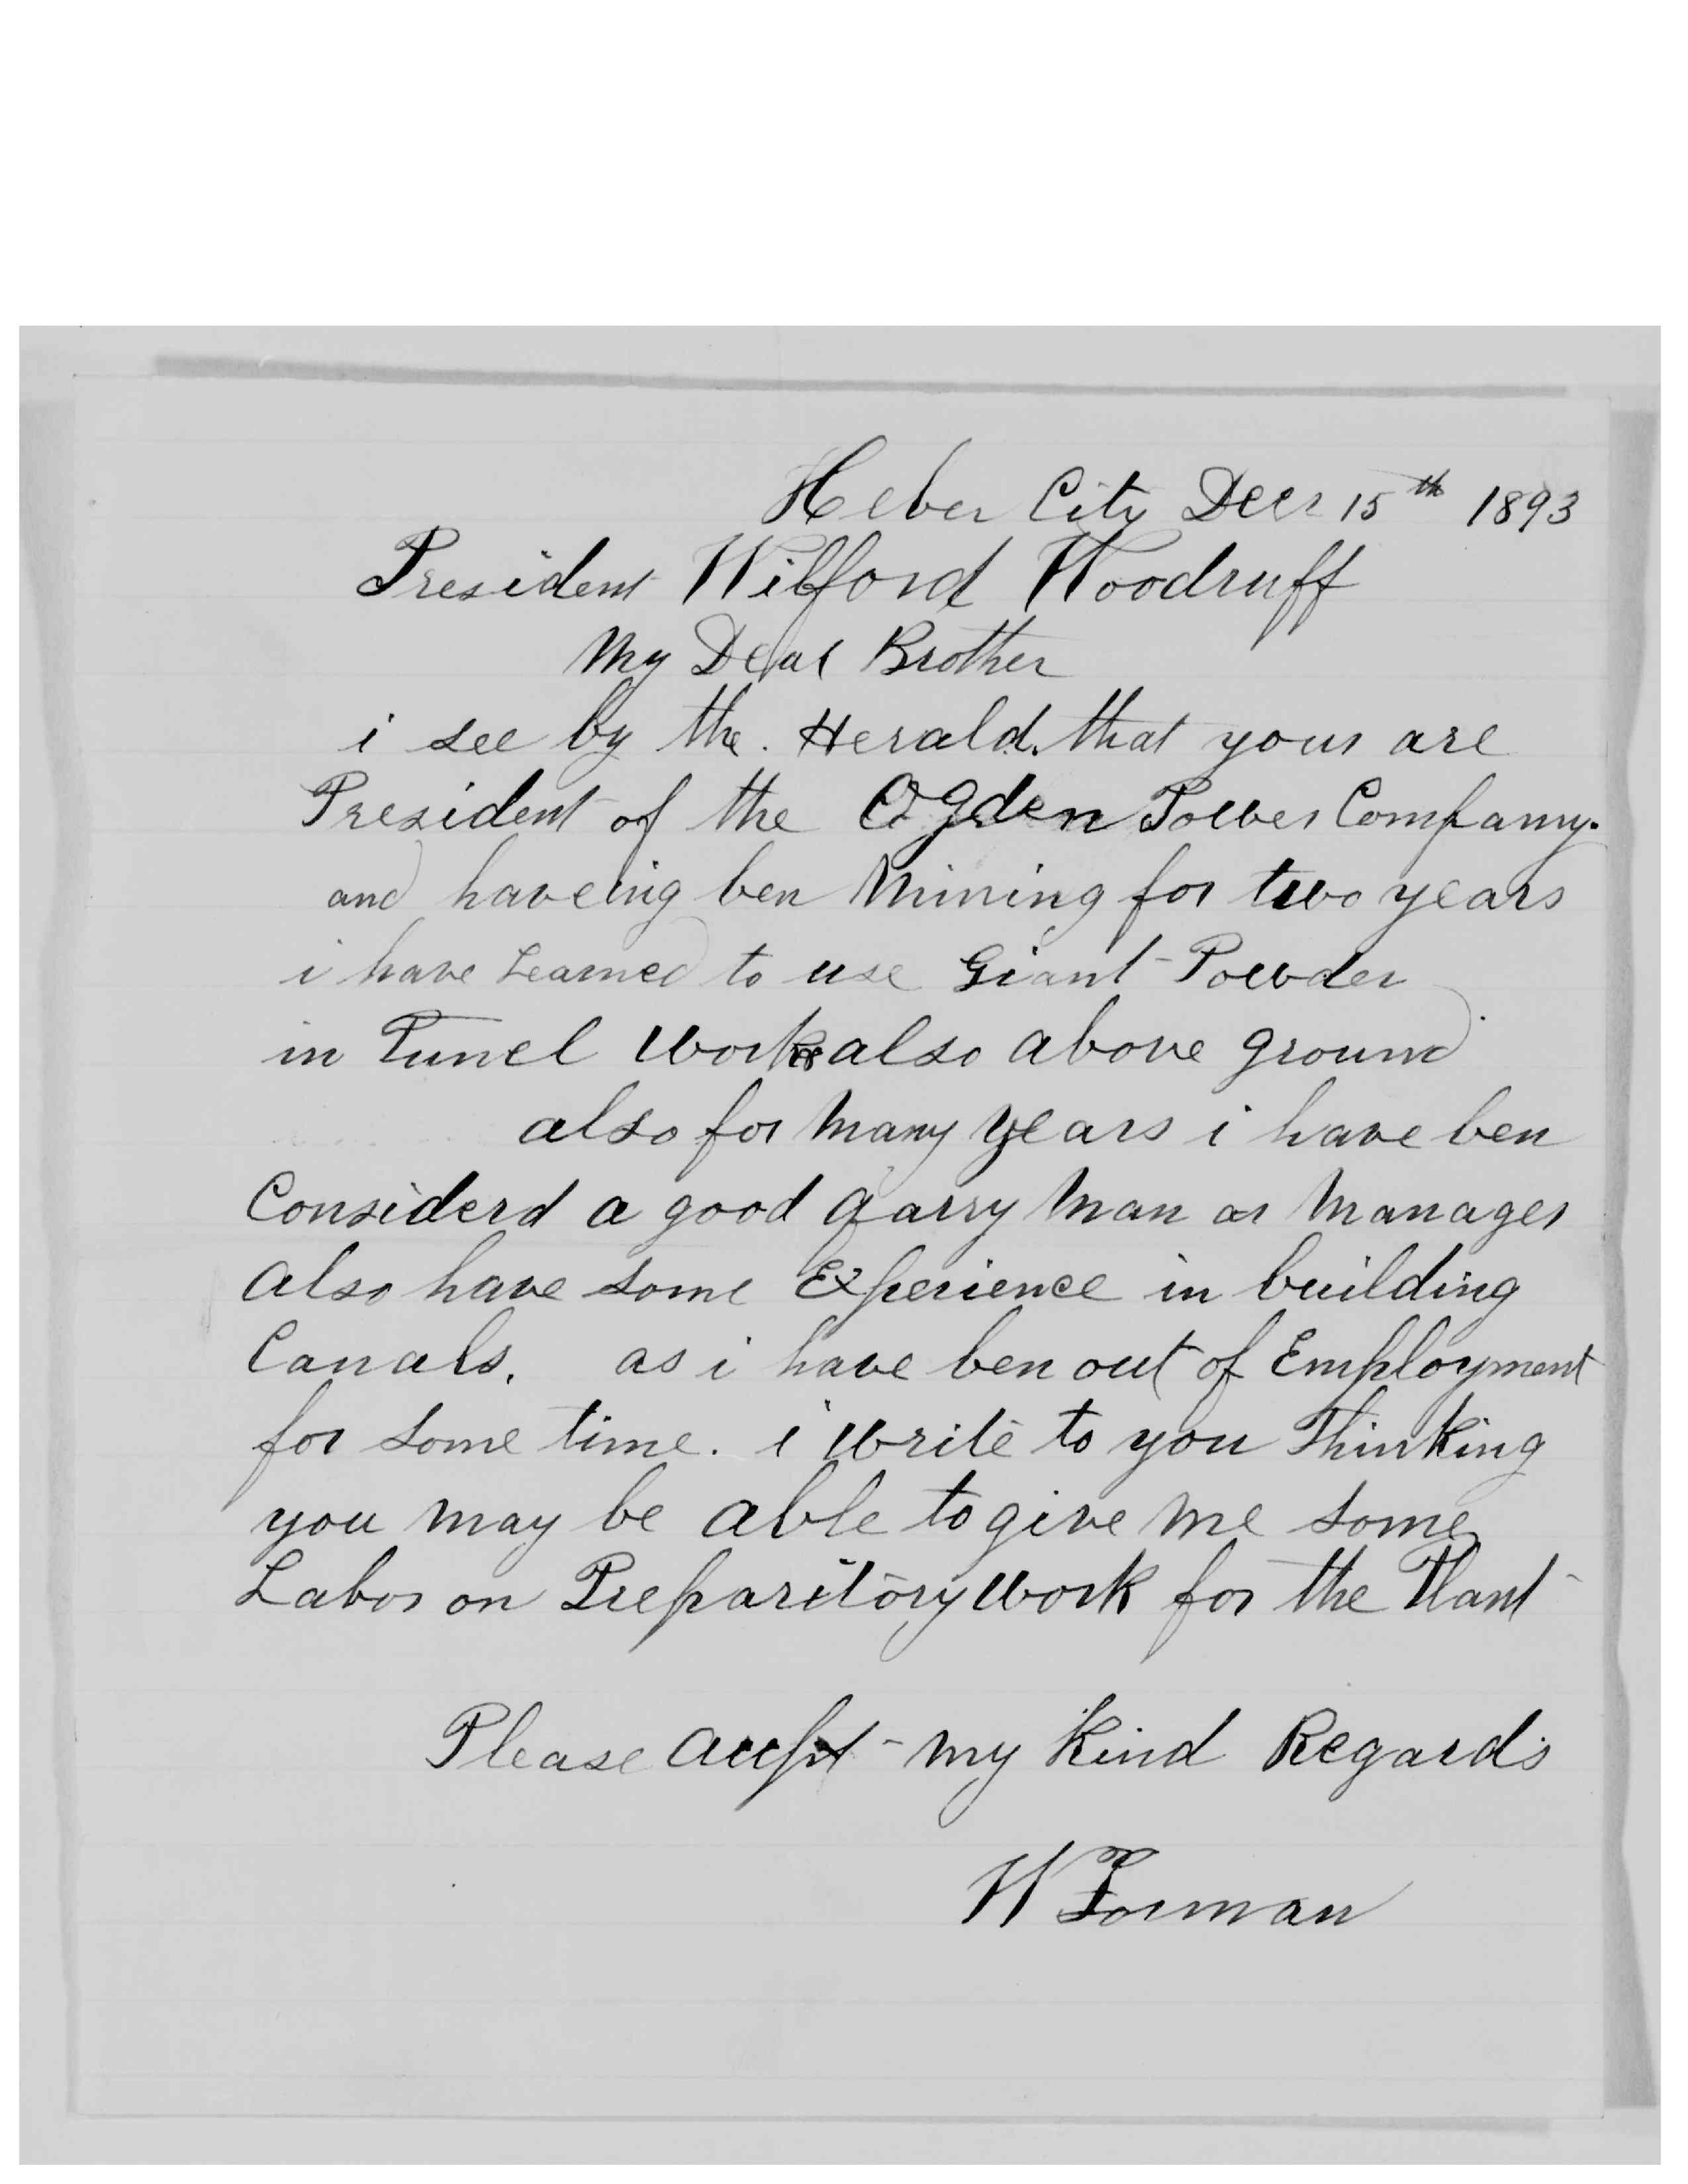 Heber City Decr 15th 1893
President Wilford Woodruff
My Dear Brother
i see by the. Herald. that your are
President of the Ogden Power Company.
and haveing ben Mining for two years
i have Learned to use Giant Powder
in Tunel work also above ground
also for Many years i have ben
Considerd a good Qarry Man or Manager
also have some Experience in building
Canals. as i have ben out of Employment
for some time. i write to you Thinking
you may be able to give me some
Labor on Preparitory work for the Plant
Please accept my Kind Regards
W Forman